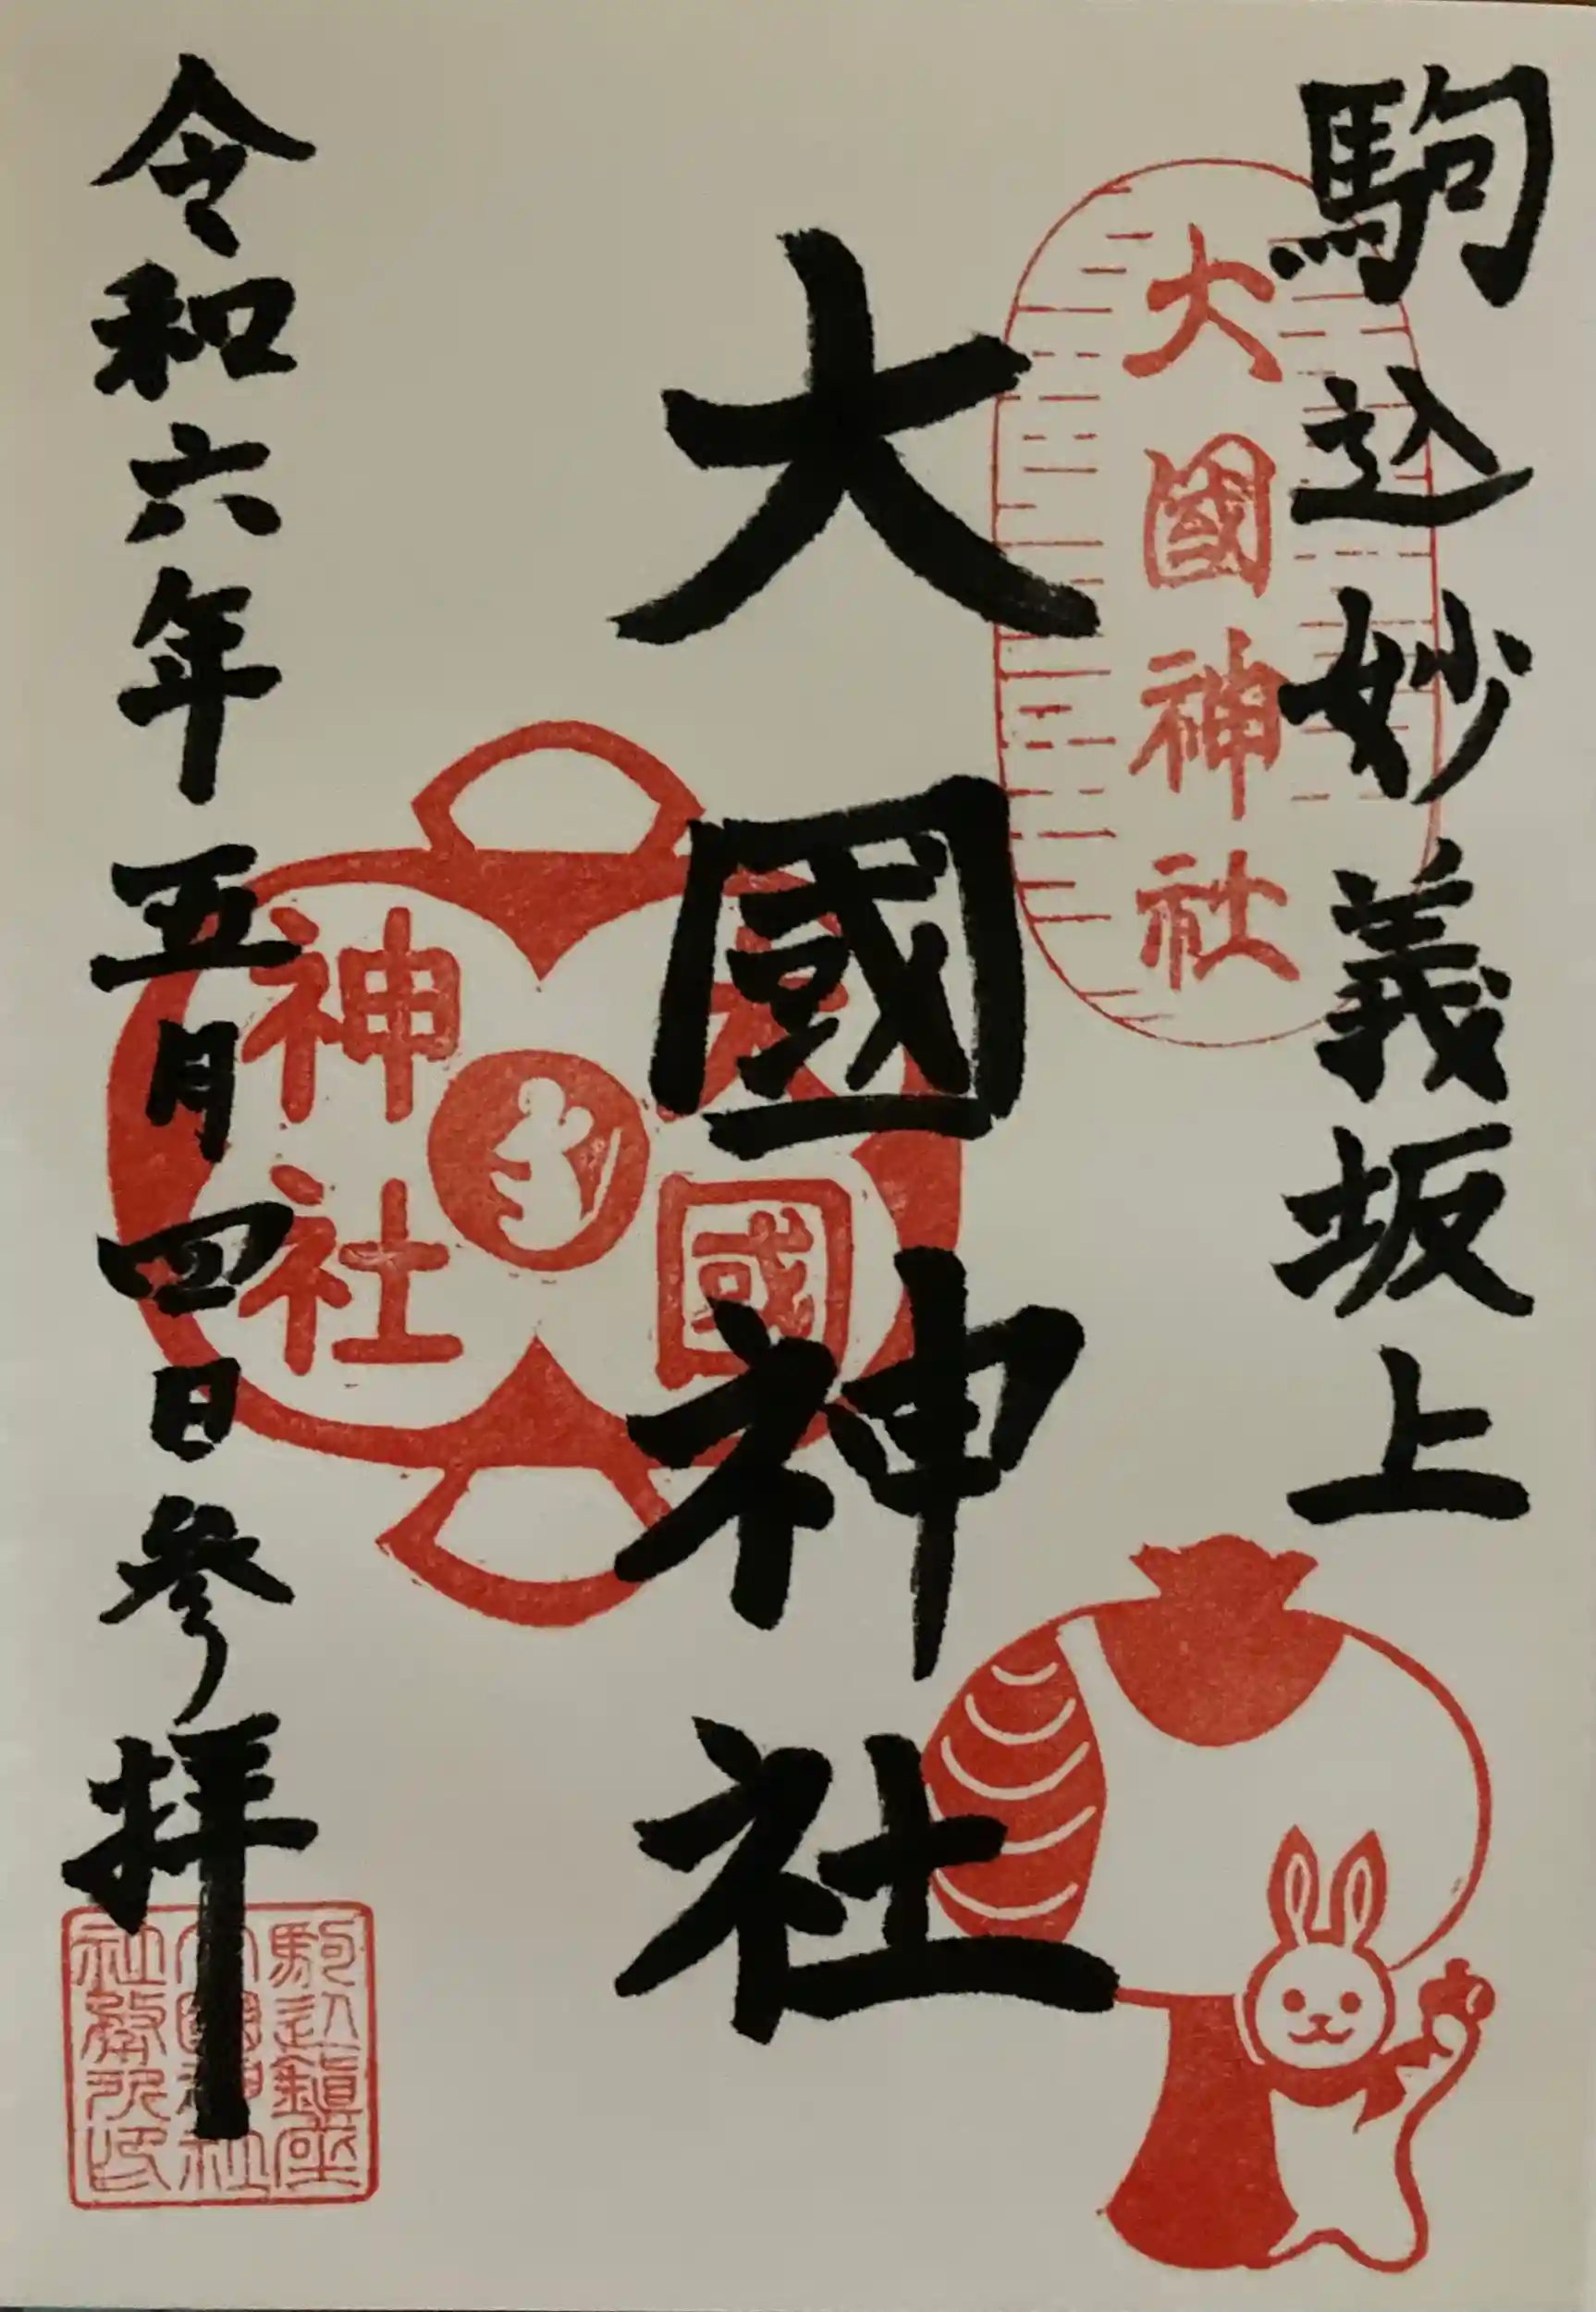 駒込妙義坂上
大國神社
大國神社
大國
神社
令和六年五月四日参拝
駒込鎮座
大國神社
社務所印